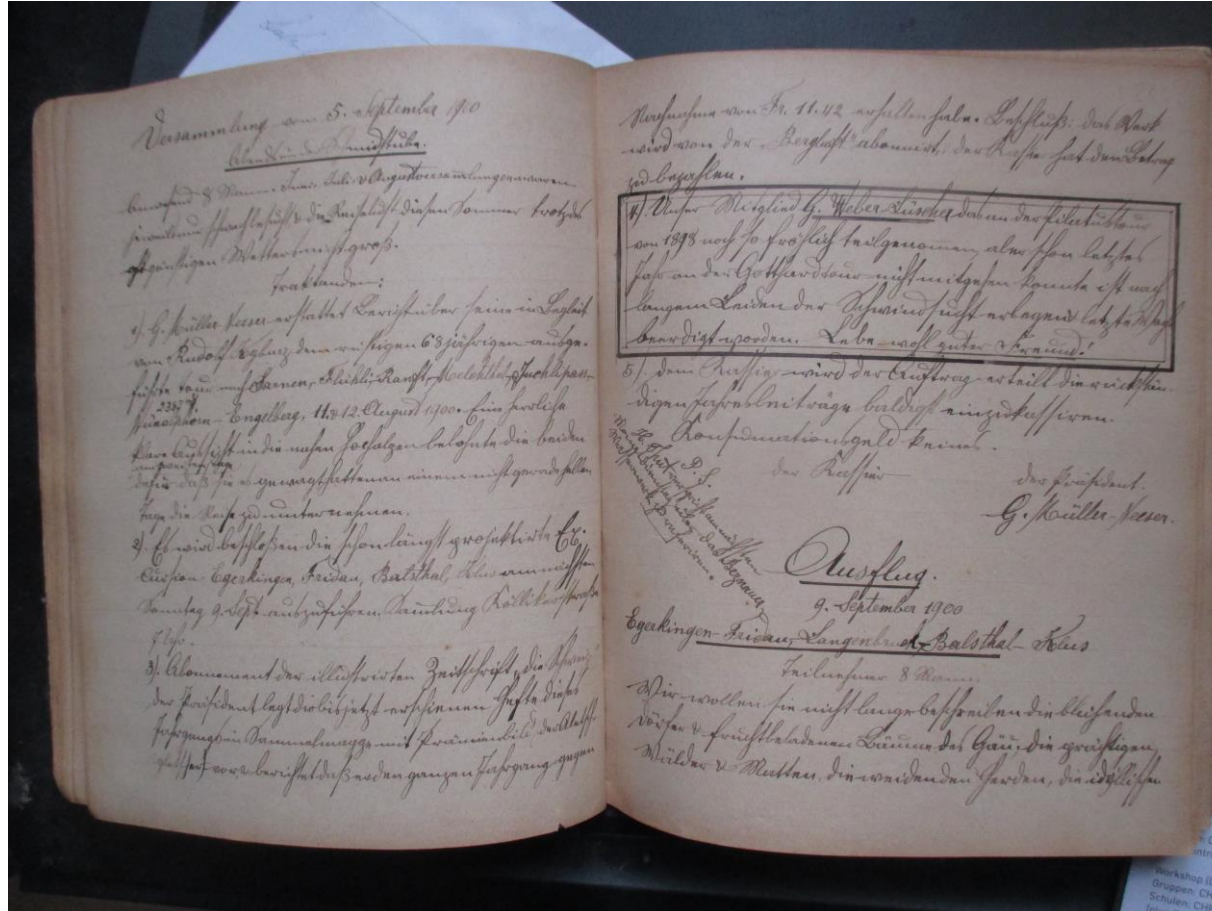 Versammlung vom 5. September 1900
Abends in der Schmidstube.
Anwesend 8 Mann. Juni, Juli & Augustversammlungen waren
jeweilen schwach besucht & die Reiselust diesen Sommer trotz des
günstigen Wetters nicht groß.
Traktanden:
1). G. Müller-Neeser erstattet Bericht über seine in Begleit
von Rudolf dem rüstigen 68 jährigen ausge-
führte Tour nach Sarnen, Flühli-Ranft, Melchthal, Juchlipass,
Engelberg, 11. & 12. August 1900. Eine herrliche
klare Aussicht in die nahen Hochalpen belohnte die beiden
am zweiten Tage
dafür daß sie es gewagt hatten an einem nicht gerade hellen
Tage die Reise zu unternehmen.
2). Es wird beschloßen die schon längst projektirte Ex-
cursion Egerkingen, Fridau, Balsthal, Klus am nächsten
Sonntag 9. Sept. auszuführen. Sammlung Köllikerstraße
7 Uhr.
3). Abonnement der illustrirten Zeitschrift „die Schweiz"
der Präsident legt die bis jetzt erschienen Hefte dieses
Jahrgangs in Sammelmappe mit Prämienbild, der
vor & berichtet daß er den ganzen Jahrgang gegen
Nachnahme von Fr. 11.42 erhalten habe. Beschluß: das Werk
wird von der „Bergluft" abonnirt; der Kassier hat den Betrag
zu bezahlen.
4.) Unser Mitglied G. Weber-Lüscher das an der Pilatustour
von 1898 noch so fröhlich teilgenommen, aber schon letztes
Jahr an der Gotthardtour nicht mitgehen konnte ist nach
langem Leiden der Schwindsucht erlegen & letzte Woche
beerdigt worden. Lebe wohl guter Freund!
5). dem Kassier wird der Auftrag erteilt die rückstän-
digen Jahresbeiträge baldigst einzukassiren.
Konsumationsgeld keines.
P. S.
das Beznauer
der Kassier der Präsident.
G. Müller-Neeser.
Ausflug.
9. September 1900
Egerkingen-Fridau, Langenbruck, Balsthal-Klus
Teilnehmer 8 Mann
Wir wollen sie nicht lange beschreiben die blühenden
Dörfer & fruchtbeladenen Bäume des Gäu, die prächtigen
Wälder & Matten, die weidenden Herden, die idyllischen
Workshop
Gruppen: CH
Schulen: CH